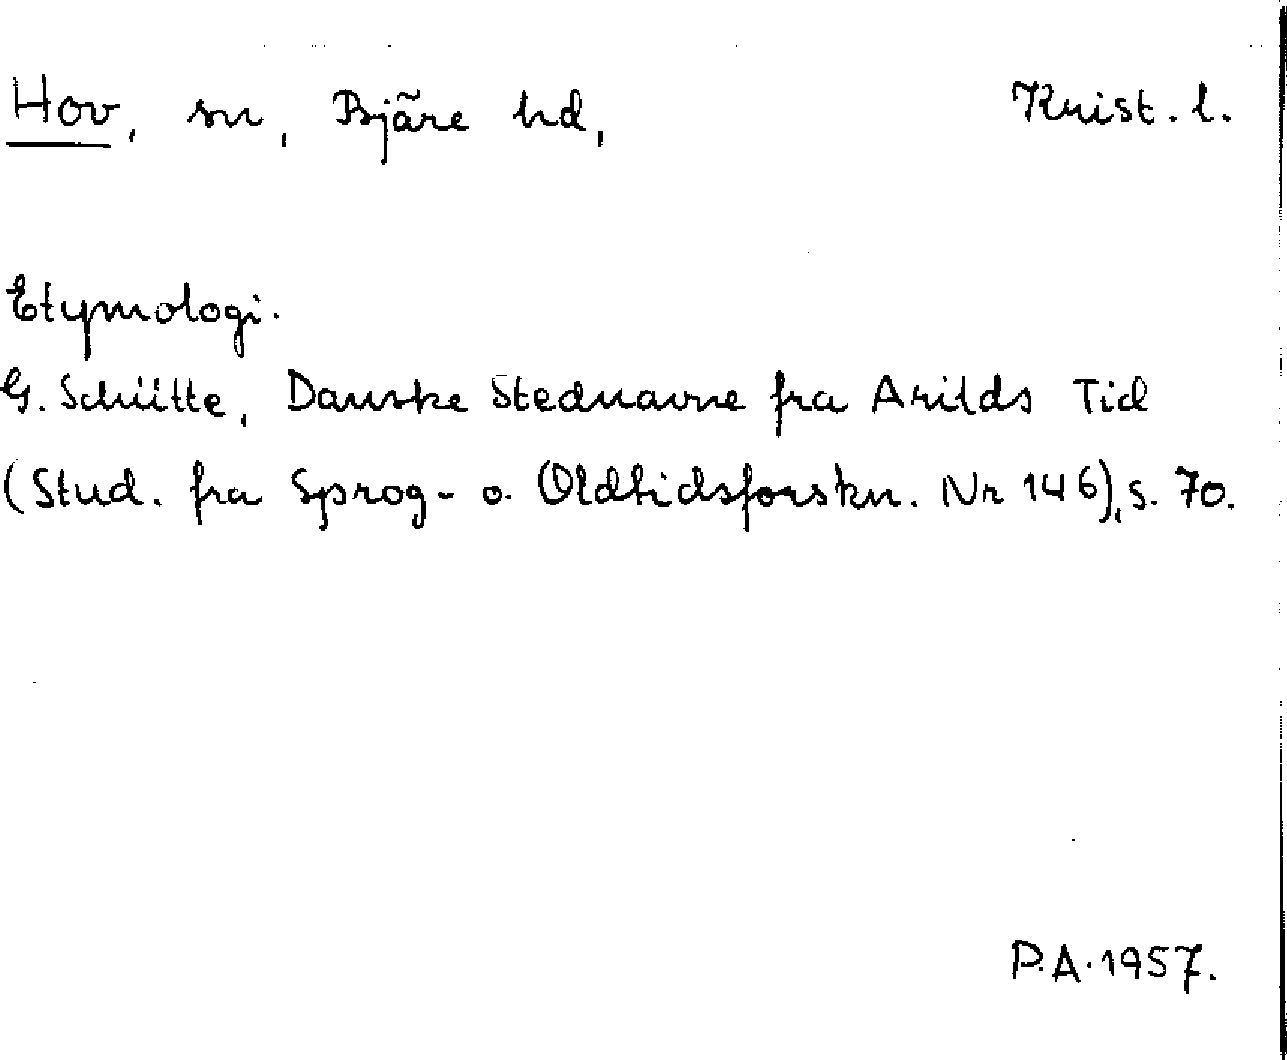 Hov, sn, Bjäre hd, Krist. l.
Etymologi.
G. Schütte, Danske Stednavne fra Arilds Tid
(Stud. fra Sprog- o. Oldtidsforskn. Nr 146), s. 70.
P.A. 1957.